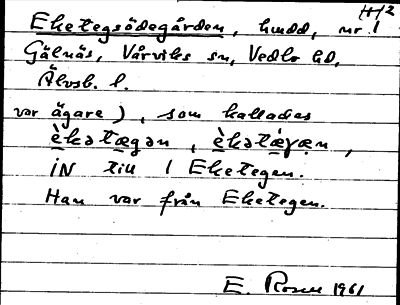 H2
Eketegsödegården, hmdd, nr 1
Gälnäs, Vårviks sn, Vedbo hd,
Älvsb. l.
var ägare), som kallades
èkətægən, èkətæ̀gæn,
iN till 1 Eketegen.
Han var från Eketegen.
E. Rosen 1961